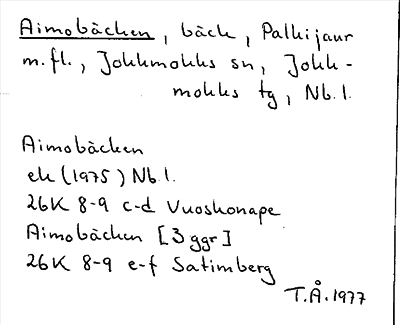 Aimobäcken, bäck, Palkijaur
m.fl., Jokkmokks sn, Jokk-
mokks tg, Nb.l.
Aimobäcken
ek (1975) Nb.l.
26K 8-9 c-d Vuoskonape
Aimobäcken [3 ggr]
26K 8-9 e-f Satimberg
T.Å. 1977